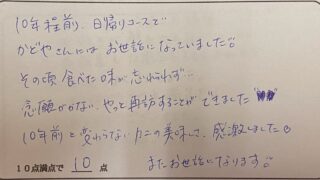 10年程前、日帰りコースで
かどやさんにはお世話になっていました。
その頃食べた味が忘れられず…
念願かない、やっと再訪することができました
10年前と変わらないカニの美味しさ、感激しました。
10点満点で 10 点
またお世話になります。